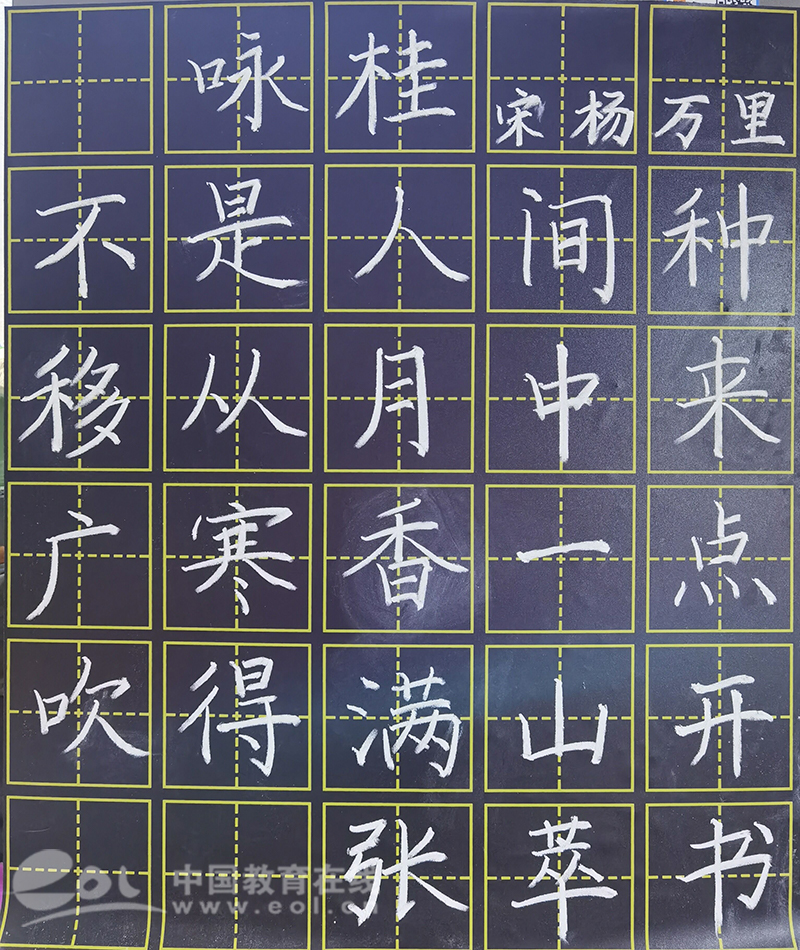 咏桂 宋 杨万里
不是人间种
移从月中来
广寒香一点
吹得满山开
张萃书
eol 中国教育在线
www.eol.cn